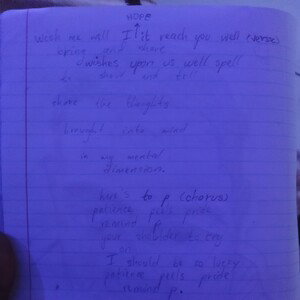 HOPE
wish me well I it reach you well (verse)
bring and share
wishes upon us well spell
show and tell
share the thoughts
brought into mind
in my mental
dimension.
to p (chorus)
patience pride
remind p.
your shoulder to cry
on
I should be so lucky
patience pride
remind p.